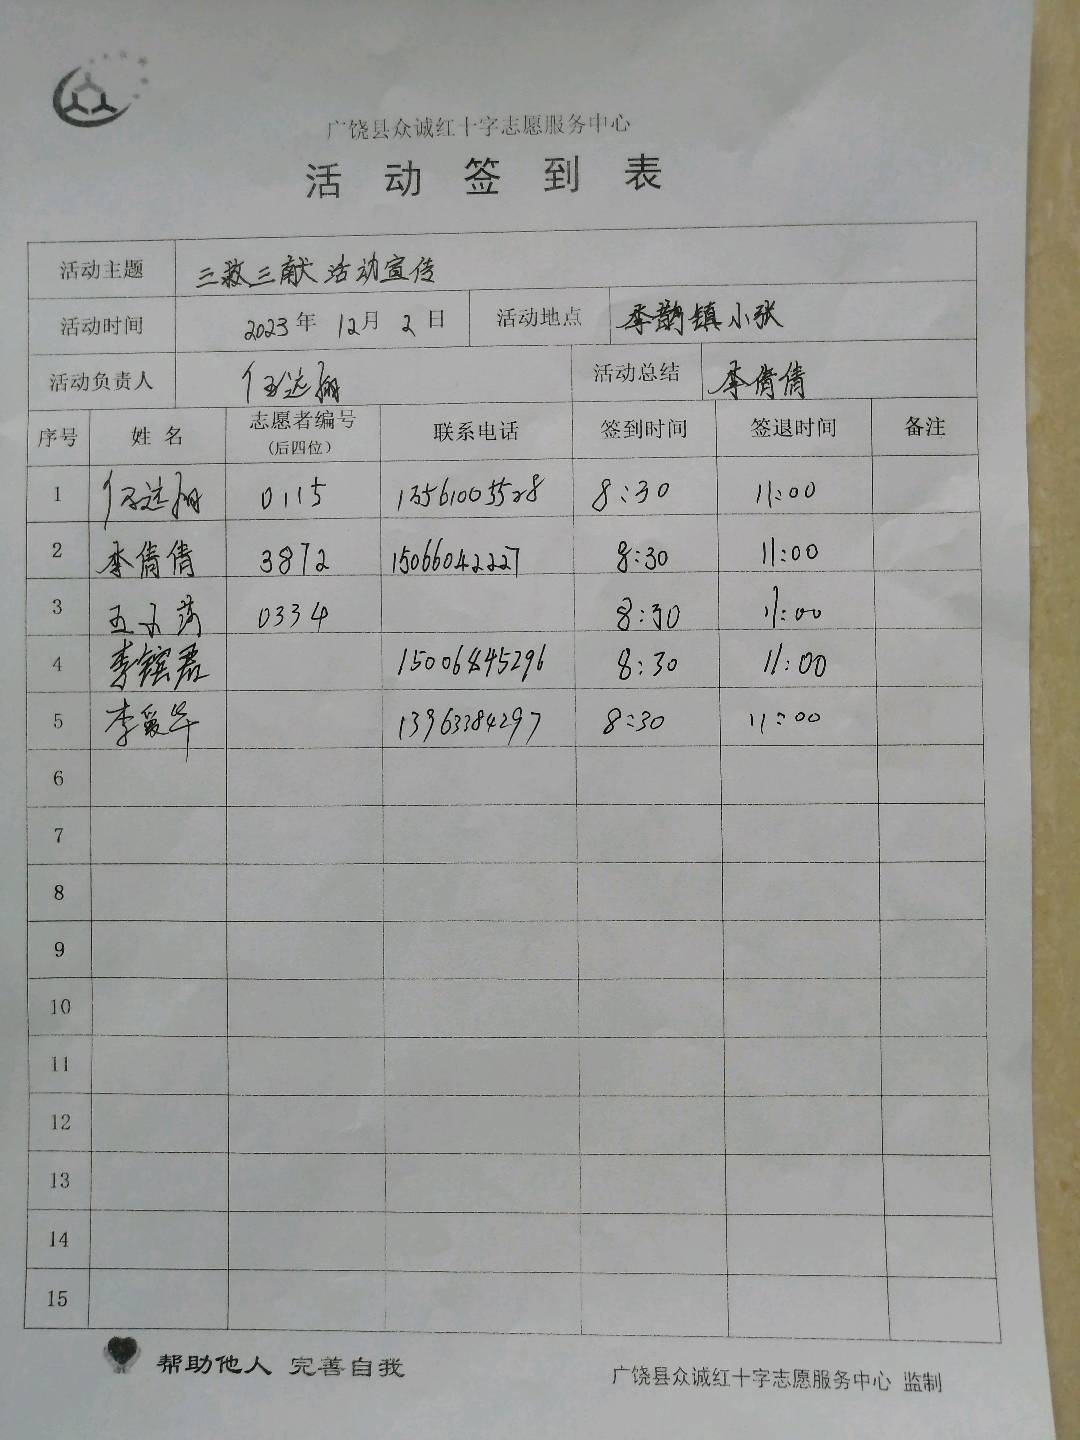 广饶县众诚红十字志愿服务中心
活动签到表
活动主题 三救三献活动宣传
活动时间 2023年 12月 2日 活动地点 李鹊镇小张
活动负责人 活动总结 李倩倩
序号 姓名 志愿者编号 (后四位) 联系电话 签到时间 签退时间 备注
1 0115 13561005528 8:30 11:00
2 李倩倩 3872 15066042227 8:30 11:00
3 0334 8:30 11:00
4 李 君 15006845296 8:30 11:00
5 李爱华 13963384297 8:30 11:00
6
7
8
9
10
11
12
13
14
15
帮助他人 完善自我
广饶县众诚红十字志愿服务中心 监制